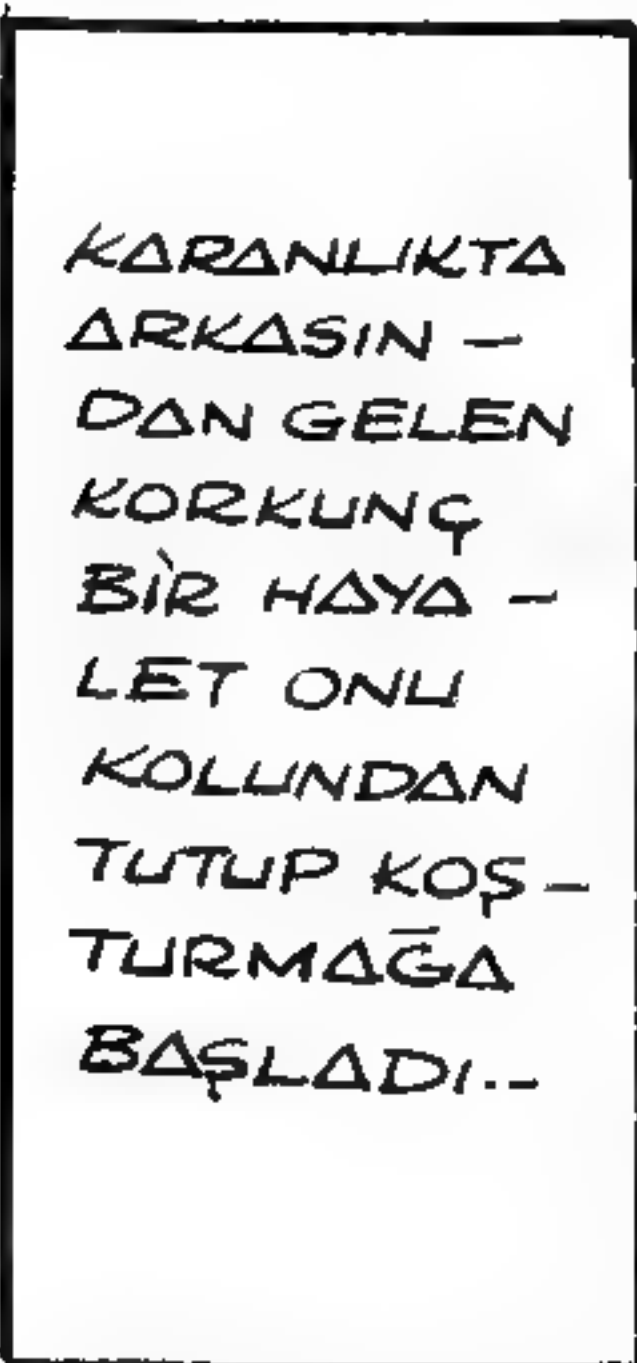 KARANLIKTA
ARKASIN -
DAN GELEN
KORKUNÇ
BİR HAYA -
LET ONU
KOLUNDAN
TUTUP KOŞ -
TURMAĞA
BAŞLADI..-